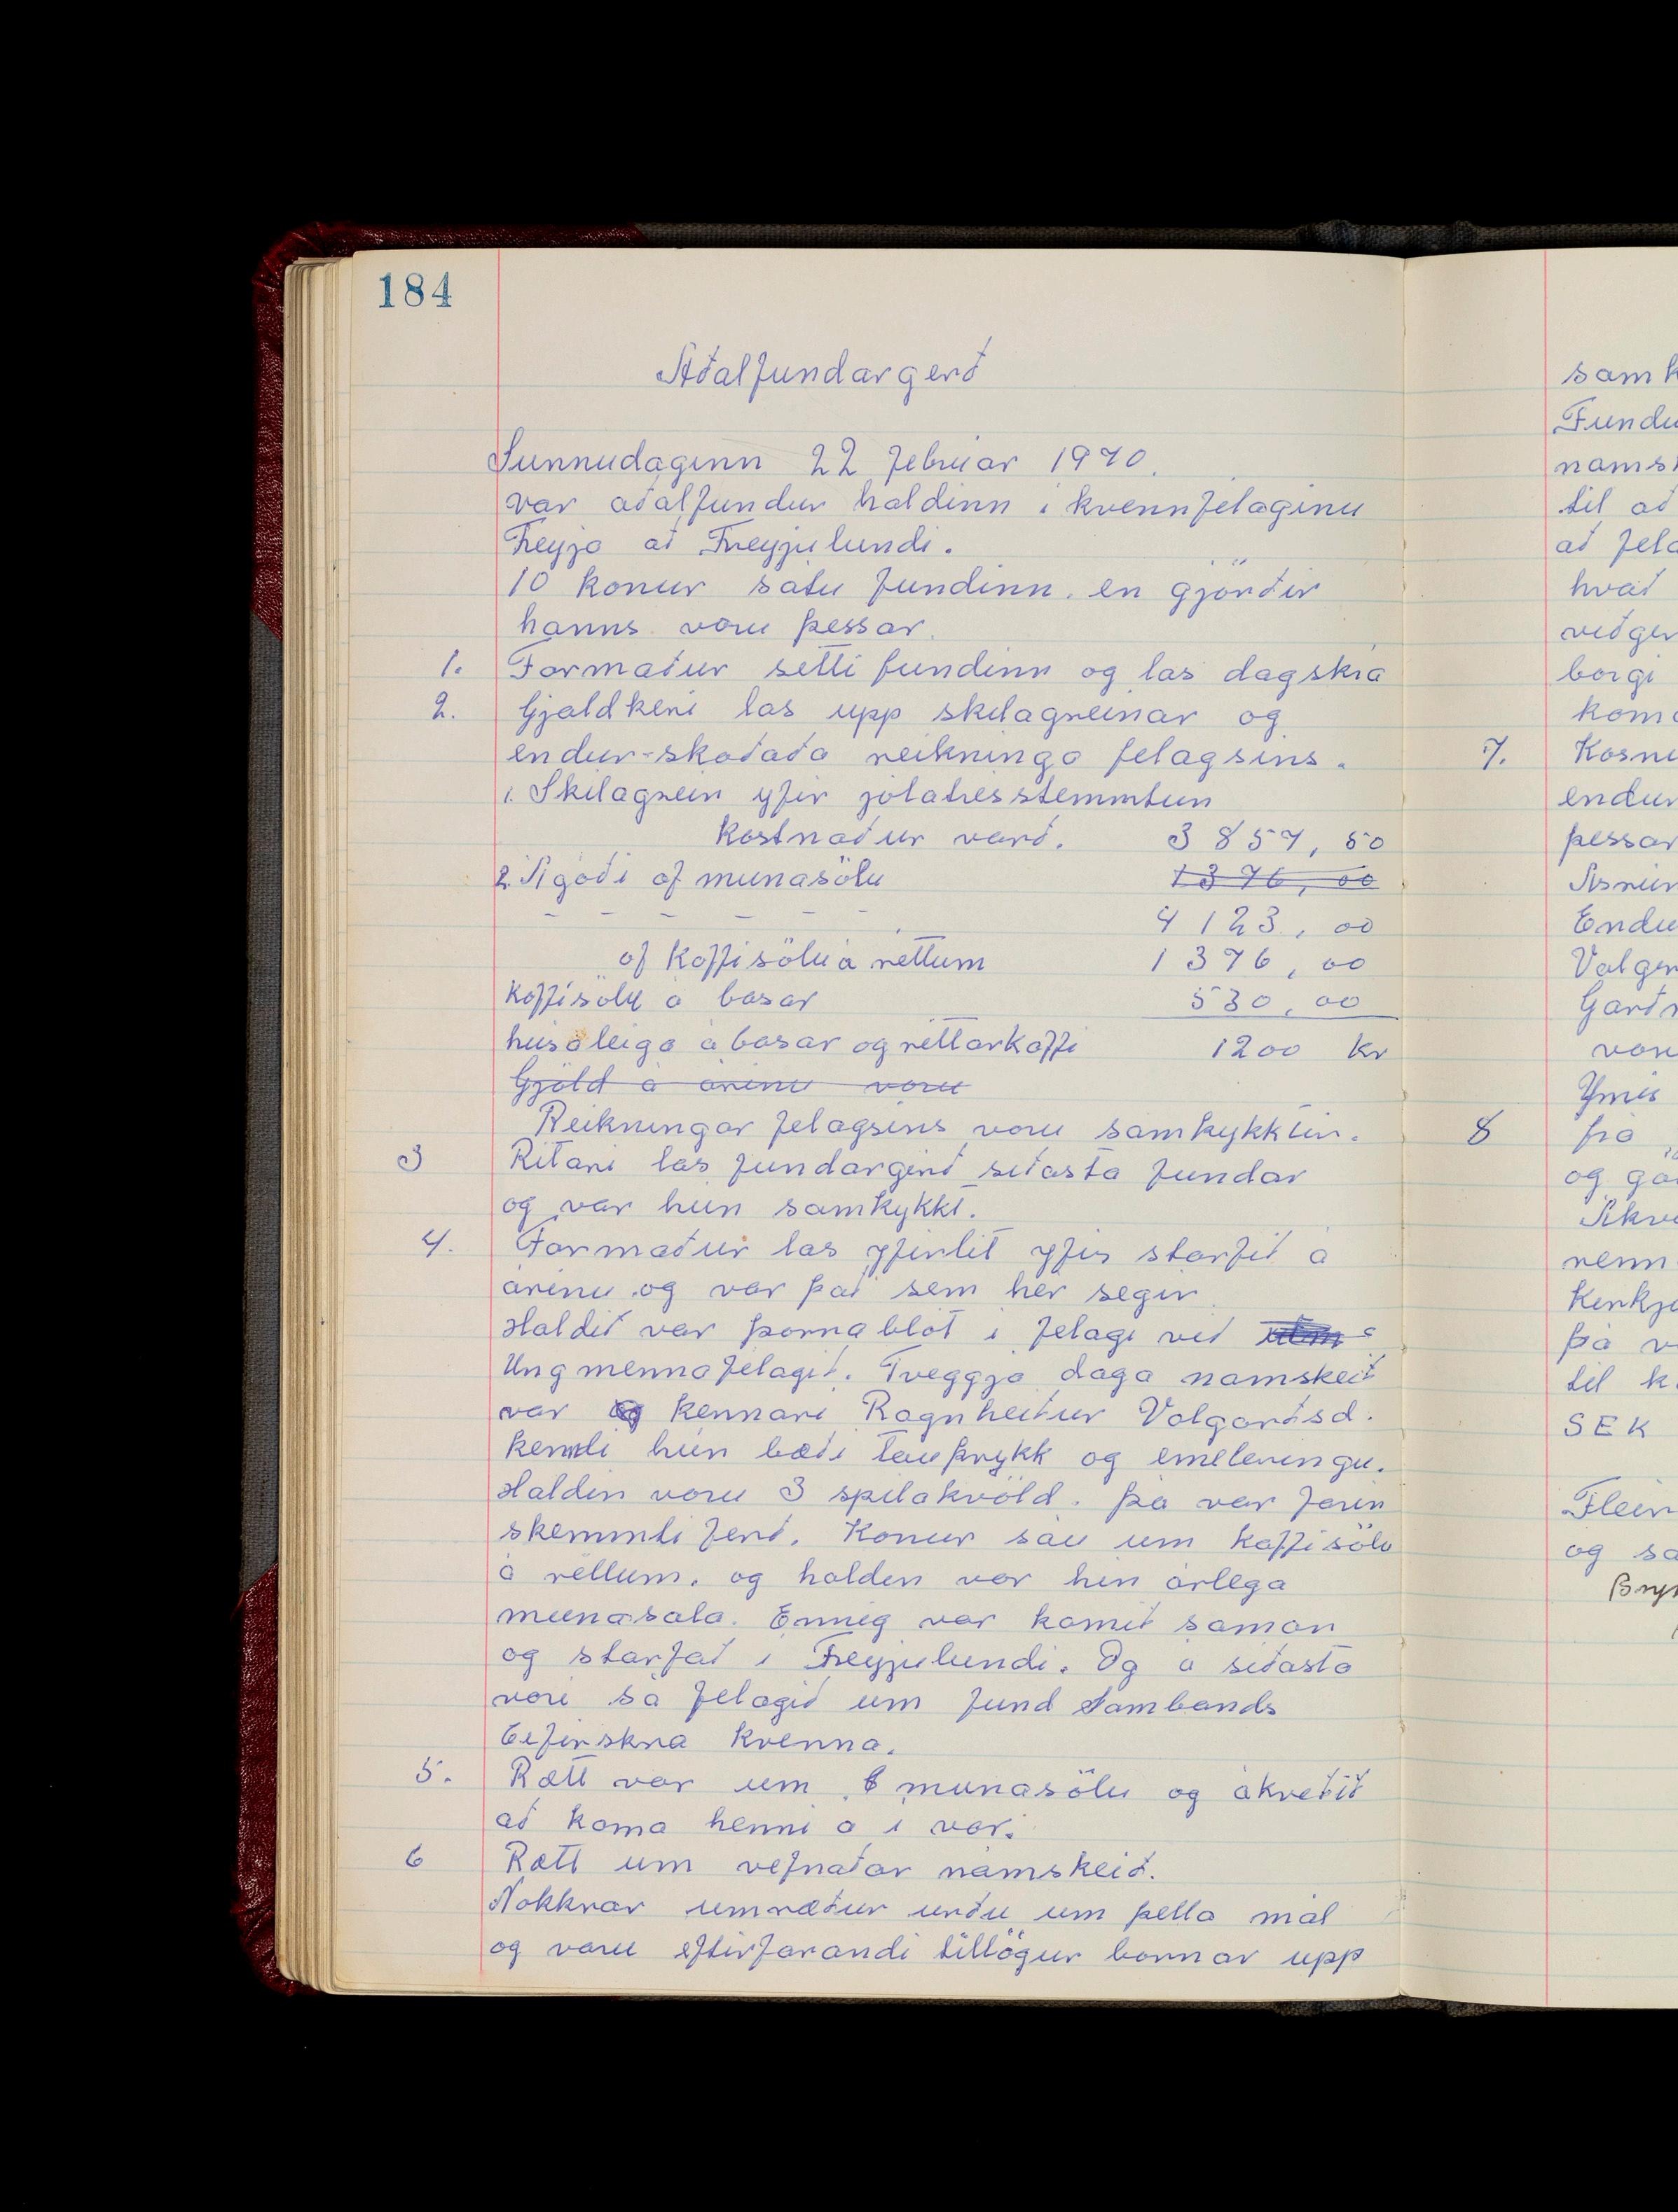 184
Aðalfundargerð
Sunnudaginn 22 febrúar 1970.
var aðalfundur haldinn i kvennfelaginu
Freyja að Freyjulundi.
10 konur satu fundinn. en gjörðir
hanns voru þessar.
1. Formaður setti fundinn og las dagskrá
2. Gjaldkeri las upp skilagreinar og
endur-skoðaða reikninga felagsins.
1. Skilagrein yfir jólatresskemmtun
kostnaður varð. 3 857, 50
2. Agóði af munasölu ~~1376, 00~~
4 123, 00
" af kaffisölu á rettum 1 376, 00
kaffisölu a basar 530, 00
húsaleiga á basar og rettarkaffi 1200 kr
~~Gjöld a arinu voru~~
Reikningar felagsins voru samþykktir.
3 Ritari las fundargerð siðasta fundar
og var hun samþykkt.
4. Formaður las yfirlit yfir starfið á
arinu og var það sem hér segir.
Haldið var þorrablót i felagi við
Ungmennafelagið. Tveggja daga namskeið
var kennari Ragnheiður Valgarðsd.
kenndi hún bæði tauþrykk og emeleringu.
Haldin voru 3 spilakvöld. þa var farin
skemmtiferð. Konur sáu um kaffisölu
á rettum. og haldin var hin árlega
munasala. Einnig var komið saman
og starfað i Freyjulundi. Og a siðasta
vori sá felagið um fund Sambands
Eyfirskra kvenna.
5. Rætt var um munasölu og ákveðið
að koma henni a i vor.
6 Rætt um vefnaðar námskeið.
Nokkrar umræður urðu um þetta mál
og voru eftirfarandi tillögur bornar upp
samþ
Fundu
namsk
til að
að fela
hvað
viðger
borgi
koma
7. Kosni
endur
þessar
Endu
Valger
Garðs
voru
Ymis
8 fra
og ga
Akve
renn
Kirkju
þá v
til k
SEK
Fleir
og sa